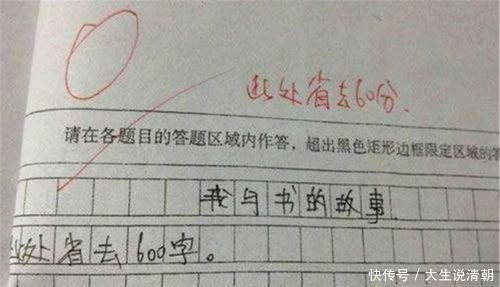 0
此处省去60分.
请在各题目的答题区域内作答，超出黑色矩形边框限定区域的答
我与书的故事
此处省去600字。
快传号／大生说清朝